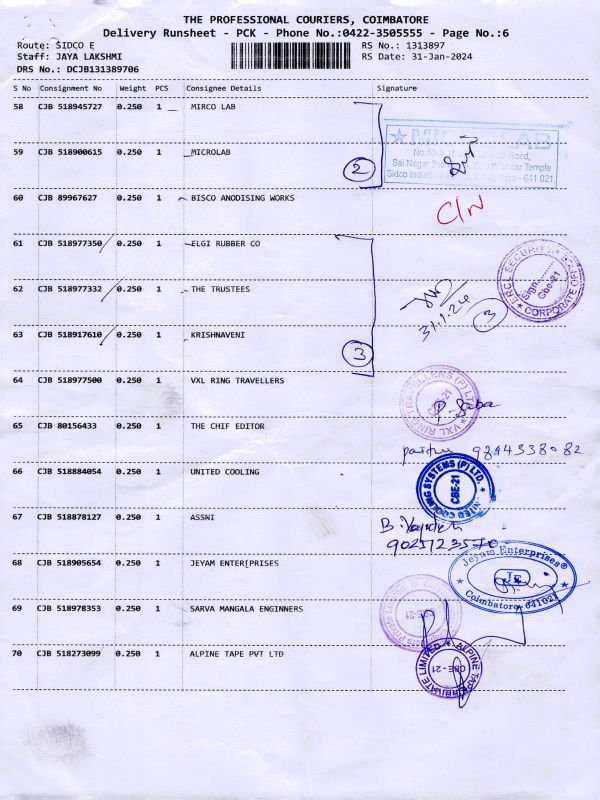 THE PROFESSIONAL COURIERS, COIMBATORE
Delivery Runsheet - PCK - Phone No.:0422-3505555 - Page No.:6
Route: SIDCO E
RS No.: 1313897
Staff: JAYA LAKSHMI
RS Date: 31-Jan-2024
DRS No.: DCJB131389706
S No Consignment No Weight PCS Consignee Details Signature
58 CJB 518945727 0.250 1 MIRCO LAB
MICROLAB
59 CJB 518900615 0.250 1 MICROLAB
Road,
Sai Nagar Temple
Sidco Industrial - 641 021.
2
60 CJB 89967627 0.250 1 BISCO ANODISING WORKS
C/N
61 CJB 518977350 0.250 1 ELGI RUBBER CO
62 CJB 518977332 0.250 1 THE TRUSTEES
Sign
CBE-21
CORPORATE
31.1.24
3
63 CJB 518917610 0.250 1 KRISHNAVENI
3
64 CJB 518977500 0.250 1 VXL RING TRAVELLERS
VXL RING TRAVELLERS (P) LTD
CBE-21
65 CJB 80156433 0.250 1 THE CHIF EDITOR
9894338082
66 CJB 518884054 0.250 1 UNITED COOLING
UNITED COOLING SYSTEMS (P) LTD.
CBE-21
67 CJB 518878127 0.250 1 ASSNI
68 CJB 518905654 0.250 1 JEYAM ENTERPRISES
Jeyam Enterprises®
JE
Coimbatore - 641021
69 CJB 518978353 0.250 1 SARVA MANGALA ENGINNERS
70 CJB 518273099 0.250 1 ALPINE TAPE PVT LTD
CBE - 21